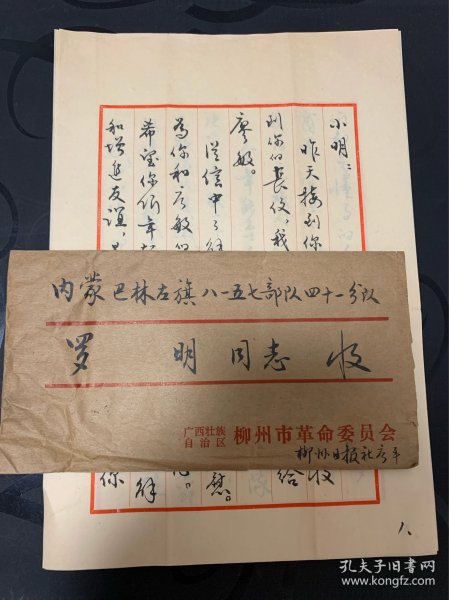 小明:
昨天接到你
到你的長信，我
廖敏。
从信中了解
为你和
希望你们年
和增进友谊，
收
给
慰。
解
你
内蒙巴林左旗八一五七部队四十一分队
罗 明 同志 收
广西壮族
自治区 柳州市革命委员会
柳州日报社
八、
孔夫子旧书网
www.kongfz.com